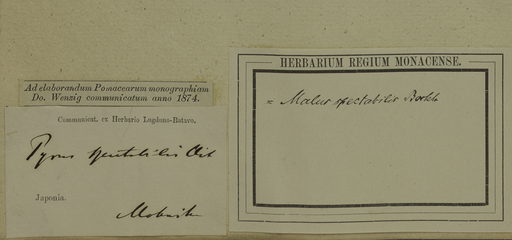 Ad elaborandum Pomacearum monographiam
Do. Wenzig communicatum anno 1874.
Communicat. ex Herbario Lugduno-Batavo.
Pyrus spectabilis Ait
Japonia.
HERBARIUM REGIUM MONACENSE.
= Malus spectabilis Borkh